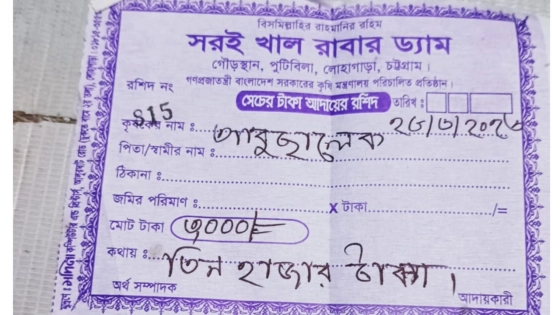 বিসমিল্লাহির রাহমানির রহিম
সরই খাল রাবার ড্যাম
গৌড়স্থান, পুটিবিলা, লোহাগাড়া, চট্টগ্রাম।
গণপ্রজাতন্ত্রী বাংলাদেশ সরকারের কৃষি মন্ত্রণালয় পরিচালিত প্রতিষ্ঠান।
রশিদ নং 815
সেচের টাকা আদায়ের রশিদ তারিখ :
কৃষকের নাম :
পিতা/স্বামীর নাম :
ঠিকানা :
জমির পরিমাণ : X টাকা /=
মোট টাকা ৩০০০/=
কথায় : তিন হাজার টাকা।
অর্থ সম্পাদক আদায়কারী